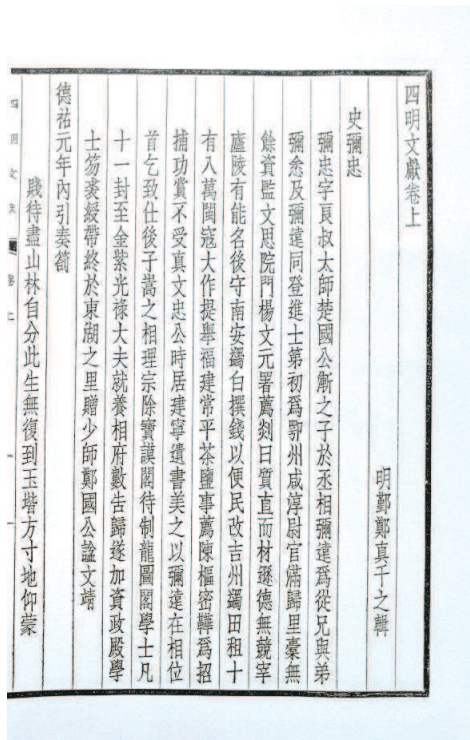 四明文獻卷上
明鄞鄭真千之輯
史彌忠
彌忠字良叔太師楚國公漸之子於丞相彌遠爲從兄與弟
彌悆及彌遠同登進士第初爲鄂州咸淳尉官滿歸里橐無
餘資監文思院門楊文元署薦剡曰質直而材遜德無競宰
廬陵有能名後守南安蠲白撰錢以便民改吉州蠲田租十
有八萬閩寇大作提舉福建常平茶鹽事薦陳樞密韡爲招
捕功賞不受真文忠公時居建寧遺書美之以彌遠在相位
首乞致仕後子嵩之相理宗除寶謨閣待制龍圖閣學士凡
十一封至金紫光祿大夫就養相府數告歸遂加資政殿學
士笏裘綬帶終於東湖之里贈少師鄭國公諡文靖
德祐元年內引奏劄
賤待盡山林自分此生無復到玉堦方寸地仰蒙
四明文獻 卷上 一